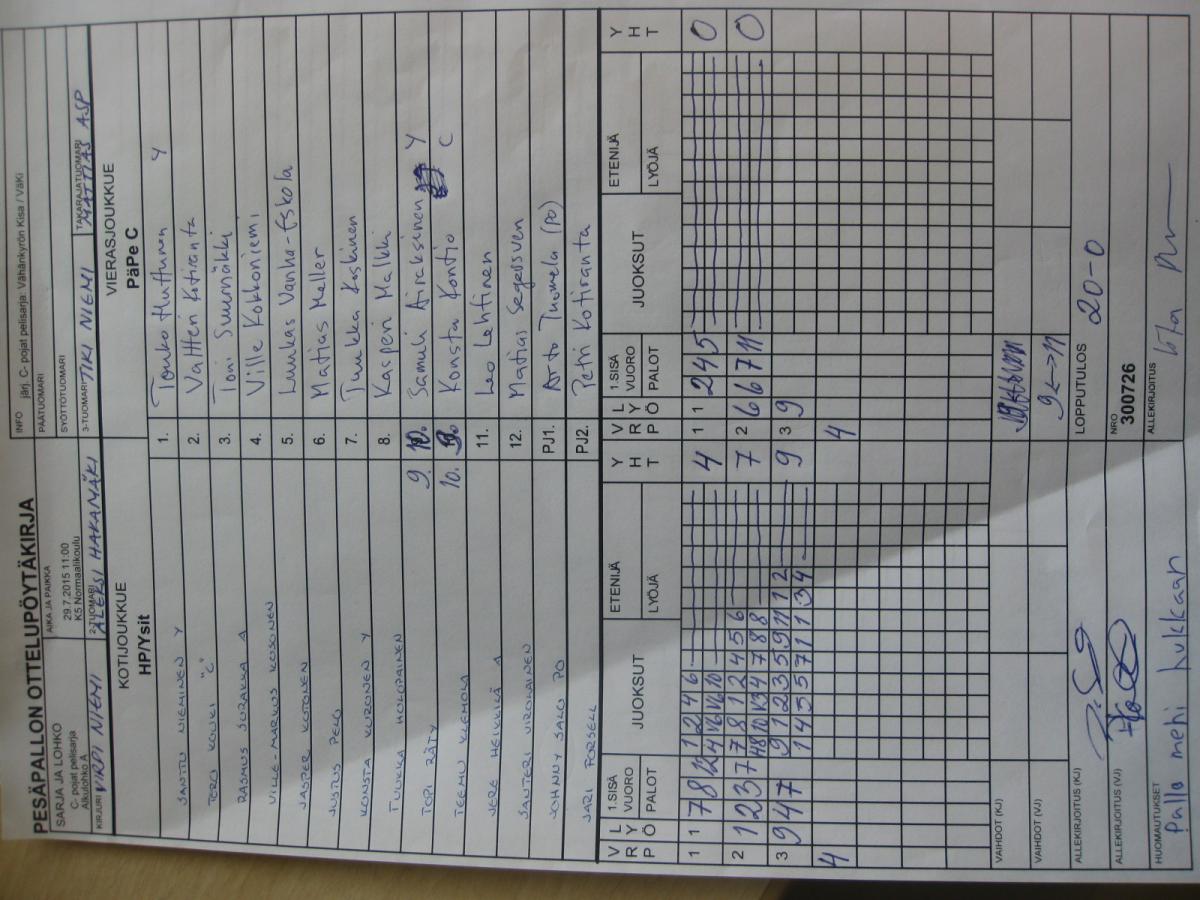 PESÄPALLON OTTELUPÖYTÄKIRJA
SARJA JA LOHKO
C- pojat pelisarja
Alkulohko A
AIKA JA PAIKKA
29.7.2015 11:00
K5 Normaalikoulu
INFO järj. C- pojat pelisarja: Vähänkyrön Kisa / VäKi
PÄÄTUOMARI
SYÖTTÖTUOMARI
KIRJURI VIRPI NIEMI
2-TUOMARI ALEKSI HAKAMÄKI
3-TUOMARI TIKI NIEMI
TAKARAJATUOMARI MATTIAS ASP
KOTIJOUKKUE
HP/Ysit
VIERASJOUKKUE
PäPe C
SANTTU NIEMINEN Y
1. Touko Huttunen Y
TERO KOUKI "C"
2. Valtteri Kotiranta
RASMUS SORAKKA A
3. Toni Suurnäkki
VILLE-MARKUS KOSONEN
4. Ville Kokkoniemi
JASPER KOTONEN
5. Luukas Vanha-Eskola
JUSTUS PELO
6. Matias Meller
KONSTA KURONEN Y
7. Tuukka Koskinen
TUUKKA HOLOPAINEN
8. Kasperi Malkki
TOPI RÄTY
9. Samuli Airaksinen Y
TEEMU KLEMOLA
10. Konsta Kontio C
JERE HEIKKILÄ A
11. Leo Lehtinen
SANTERI VIROLAINEN
12. Matias Segersven
JOHNNY SALO PO
PJ1. Arto Tuomela (PO)
JARI FORSELL
PJ2. Petri Kotiranta
V R P
L Y Ö
1.SISÄ VUORO
PALOT
JUOKSUT
ETENIJÄ
LYÖJÄ
Y H T
V R P
L Y Ö
1.SISÄ VUORO
PALOT
JUOKSUT
ETENIJÄ
LYÖJÄ
Y H T
1 1 7 8 12 1 2 4 6 4
1 1 2 4 5 0
2 1 2 3 7 7 8 1 2 4 5 6 7
2 6 6 7 11 0
3 9 4 7 9 1 2 3 5 9 11 1 2 9
1 4 5 5 7 1 1 3 4
3 9
4
4
VAIHDOT (KJ)
VAIHDOT (VJ)
9<->11
ALLEKIRJOITUS (KJ)
LOPPUTULOS 20-0
ALLEKIRJOITUS (VJ)
NRO
300726
HUOMAUTUKSET
Pallo meni hukkaan
ALLEKIRJOITUS